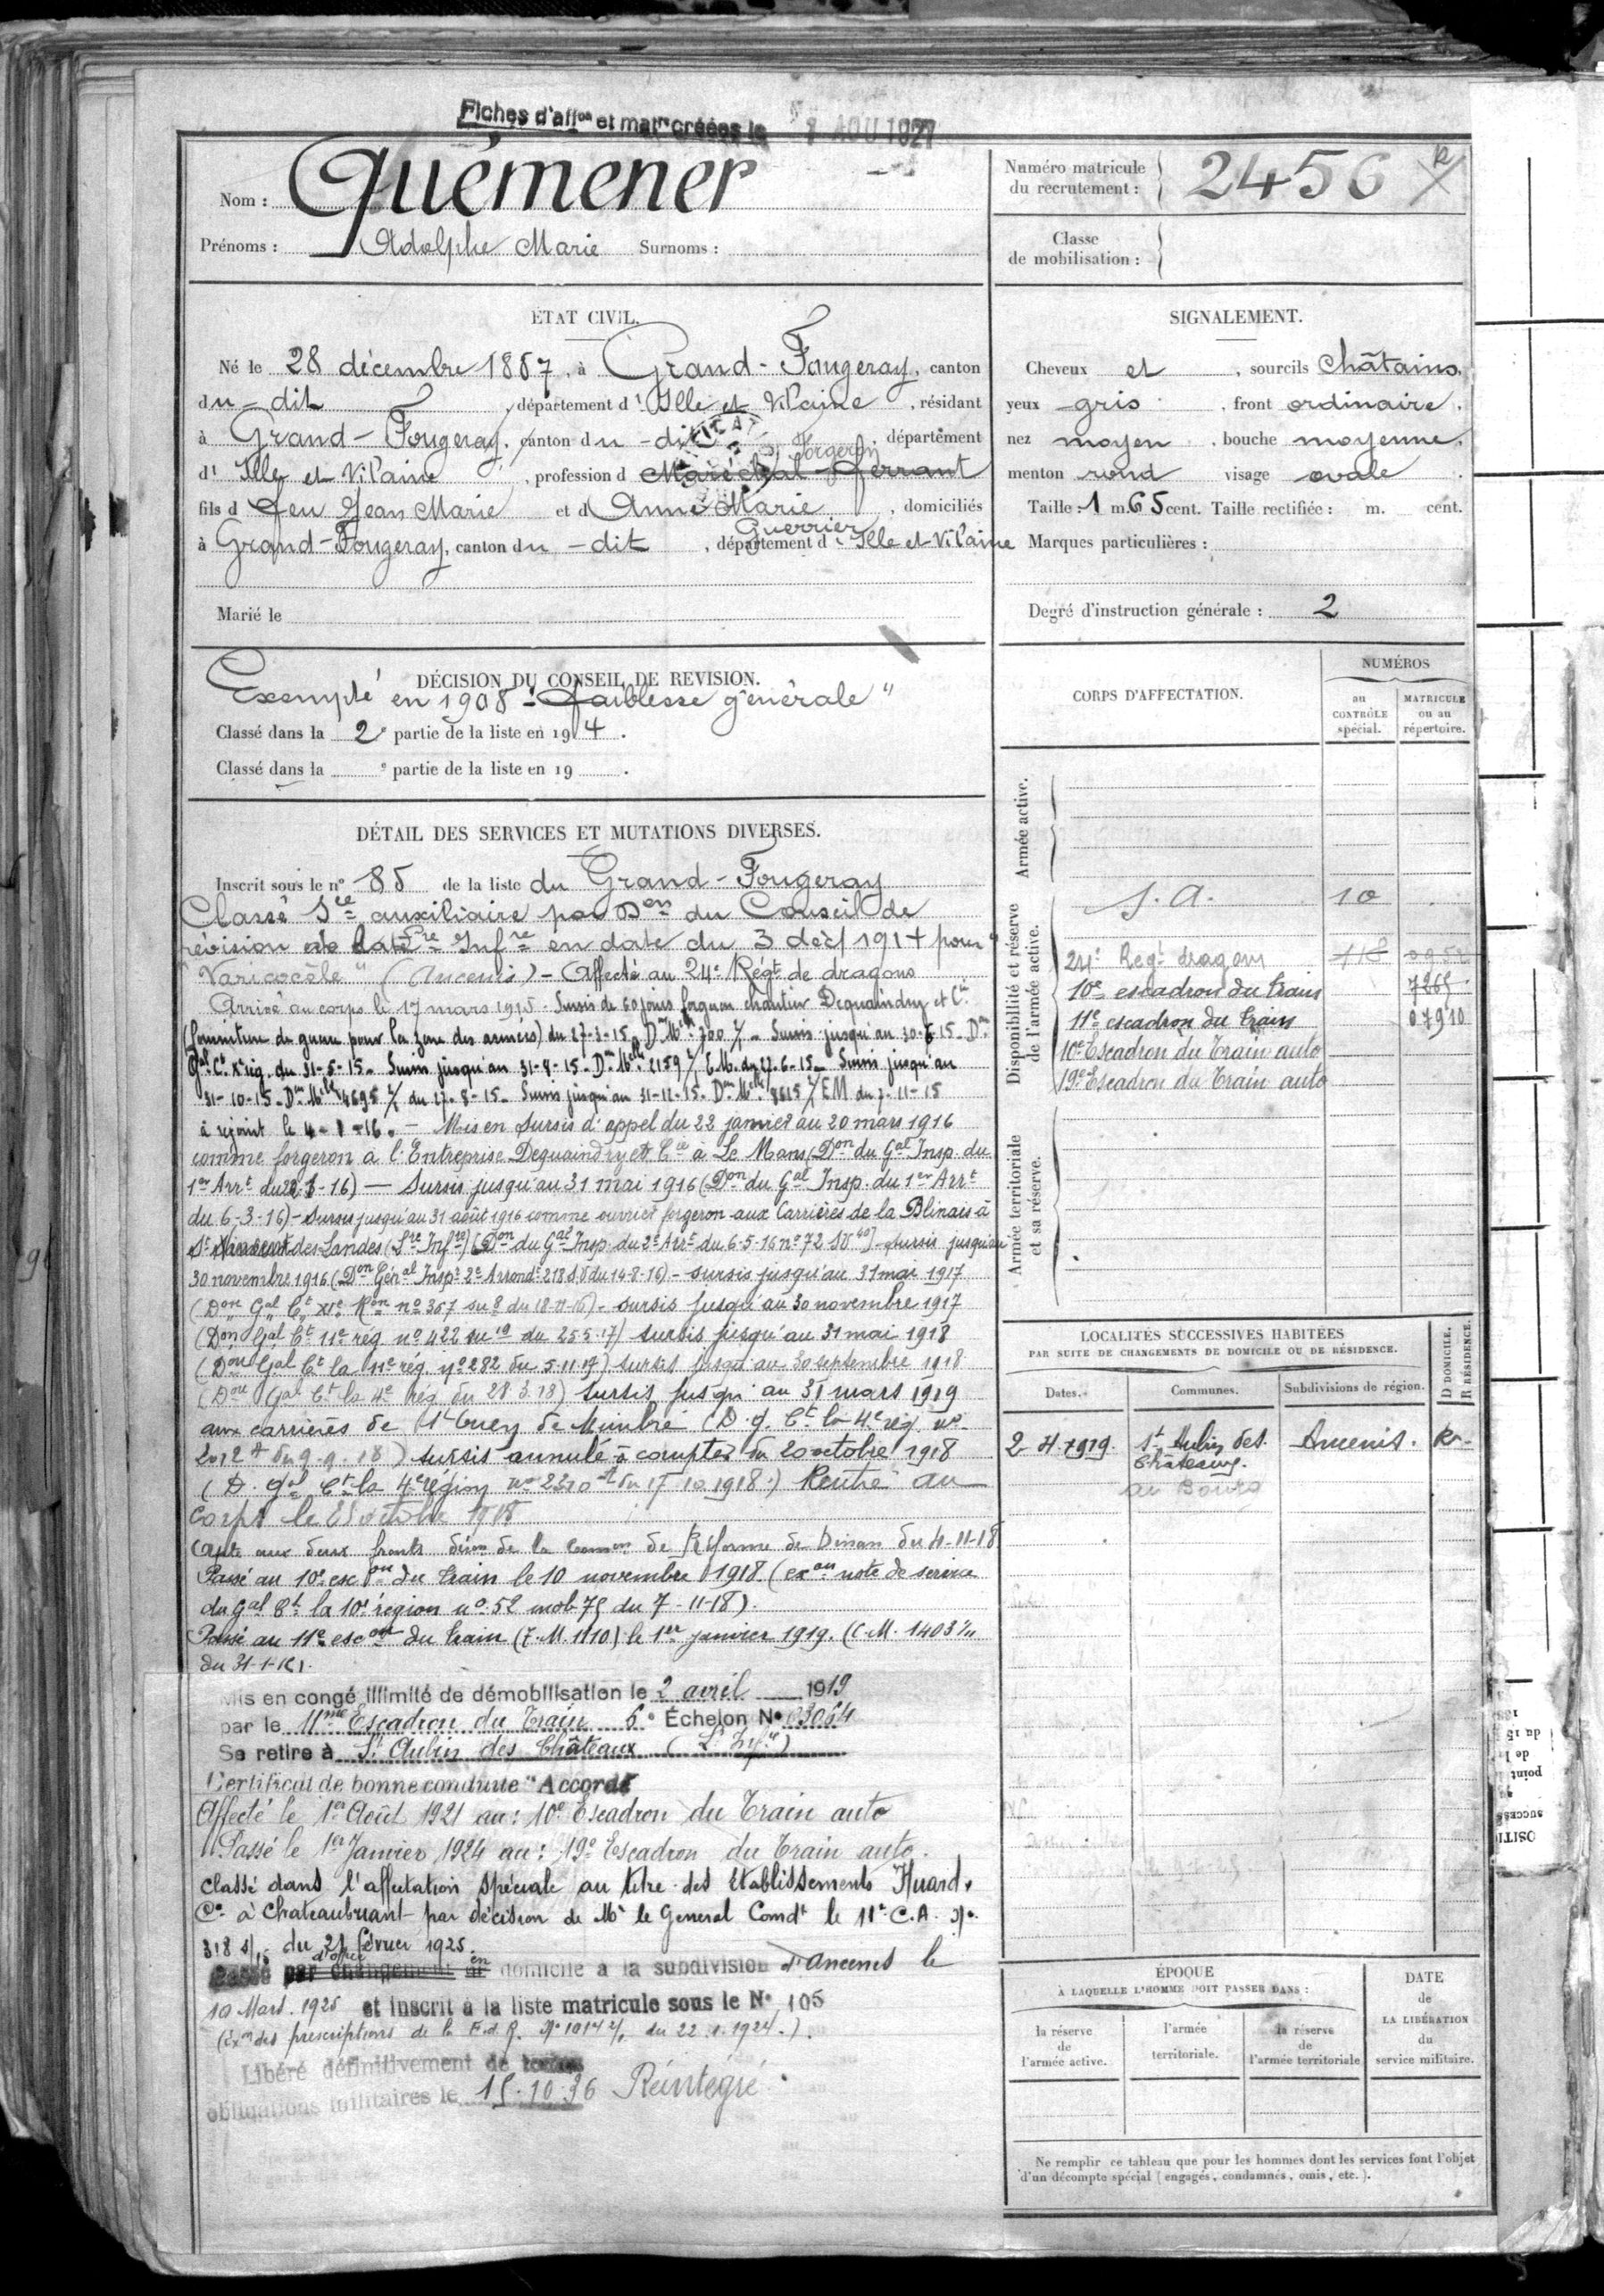 Fiches d'affon et matre créées le 1 AOU 1927
Nom : Quémener
Prénoms : Adolphe Marie Surnoms :
Numéro matricule du recrutement : 2456
Classe de mobilisation :
ÉTAT CIVIL.
Né le 28 décembre 1887, à Grand-Fougeray, canton
du -dit, département d'Ille et Vilaine, résidant
à Grand-Fougeray, canton du -dit, département
d'Ille et Vilaine, profession d Maréchal-ferrant Forgeron
fils d feu Jean Marie et d Anne Marie Guerrier, domiciliés
à Grand-Fougeray, canton du -dit, département d'Ille et Vilaine
Marié le
SIGNALEMENT.
Cheveux et, sourcils châtains,
yeux gris, front ordinaire,
nez moyen, bouche moyenne,
menton rond visage ovale
Taille : 1 m. 65 cent. Taille rectifiée : m. cent.
Marques particulières :
Degré d'instruction générale : 2
DÉCISION DU CONSEIL DE REVISION.
Exempté en 1908 - "faiblesse générale"
Classé dans la 2e partie de la liste en 1914.
Classé dans la e partie de la liste en 19 .
DÉTAIL DES SERVICES ET MUTATIONS DIVERSES.
Inscrit sous le no 85 de la liste du Grand-Fougeray
Classé Sce auxiliaire par Don du Conseil de
révision de la Lre Infre en date du 3 déc/ 1914 pour
"Varicocèle" (Ancenis) - Affecté au 24e Régt de dragons
Arrivé au corps le 17 mars 1915 - Sursis de 60 jours forgeron chantier Dequaindry et Cie
(fourniture de guerre pour la zone des armées) du 27-3-15 Don Melle 700 %. - Sursis jusqu'au 30-6-15 - Don
Gal Ct Xe rég. du 31-5-15 - Sursis jusqu'au 31-8-15 - Don Melle 2159 % E.M. du 27-6-15 - Sursis jusqu'au
31-10-15 - Don Melle 4695 % du 27-8-15 - Sursis jusqu'au 31-12-15 - Don Melle 8615 % EM du 7-11-15
a rejoint le 4-1-16. - Mis en sursis d'appel du 22 janvier au 20 mars 1916
comme forgeron à l'Entreprise Dequaindry et Cie à Le Mans (Don du Gal Insp. du
1er Arrt du 22-1-16) - Sursis jusqu'au 31 mai 1916 (Don du Gal Insp. du 1er Arrt
du 6-3-16) - Sursis jusqu'au 31 août 1916 comme ouvrier forgeron aux Carrières de la Blinais à
St Vincent des Landes (Lre Infre) (Don du Gal Insp. du 2e Arrt du 6-5-16 no 72 SV 40) - Sursis jusqu'au
30 novembre 1916 (Don Génal Inspr 2e Arrondt 218 S.V du 14-8-16) - sursis jusqu'au 31 mai 1917
(Don Gal Ct XIe Ron no 367 su 8 du 18-11-16) - sursis jusqu'au 30 novembre 1917
(Don Gal Ct 11e rég no 422 su 19 du 25.5.17) sursis jusqu'au 31 mai 1918
(Don Gal Ct la 11e rég. no 282 du 5.11.17) sursis jusqu'au 30 septembre 1918
(Don Gal Ct la 4e rég du 28.3.18) sursis jusqu'au 31 mars 1919
aux carrières de St Ouen de Mimbré (D. g. Ct la 4e rég. no
2012 du 9.9.18) sursis annulé à compter du 20 octobre 1918
(D. Gal Ct la 4e région no 2310 du 17.10.1918.) Rentré au
corps le octobre 1918
apte aux deux fronts décon de la Common de Réforme de Dinan du 4-11-18
Passé au 10e escon du train le 10 novembre 1918. (exon note de service
du Gal Ct la 10e région no 52 mob 75 du 7-11-18).
Passé au 11e escon du train (T.M. 1110) le 1er janvier 1919. (C.M. 1403
du 31-1-19).
Mis en congé illimité de démobilisation le 2 avril 1919
par le 11me Escadron du Train 6e Échelon No 03064
Se retire à St Aubin des Châteaux (Lre Infre)
Certificat de bonne conduite "Accordé"
Affecté le 1er Août 1921 au : 10e Escadron du Train auto
Passé le 1er Janvier 1924 au : 19e Escadron du Train auto.
Classé dans l'affectation spéciale au titre des établissements Huard &
Cie à Chateaubriant par décision de Mr le Général Comdt le 11e C.A. No
318 du 21 février 1925.
Passé par changement de d'office en domicile à la subdivision d'Ancenis le
10 Mars 1925 et inscrit à la liste matricule sous le No 105
(Exon des prescriptions de la No 1014 du 22.1.1924.).
Libéré définitivement de toutes
obligations militaires le 15.10.36 Réintégré
CORPS D'AFFECTATION.
NUMÉROS
au CONTRÔLE spécial.
MATRICULE ou au répertoire.
Armée active.
Disponibilité et réserve de l'armée active.
S.A. 10
24e Regt dragons
10e escadron du train 7265
11e escadron du train 07910
10e Escadron du Train auto
19e Escadron du Train auto
Armée territoriale et sa réserve.
LOCALITÉS SUCCESSIVES HABITÉES
PAR SUITE DE CHANGEMENTS DE DOMICILE OU DE RÉSIDENCE.
Dates. Communes. Subdivisions de région. D DOMICILE. R RÉSIDENCE.
2-4-1919. St Aubin des Châteaux. Ancenis. R.
au Bourg
ÉPOQUE
À LAQUELLE L'HOMME DOIT PASSER DANS :
la réserve de l'armée active.
l'armée territoriale.
la réserve de l'armée territoriale
DATE de LA LIBÉRATION du service militaire.
Ne remplir ce tableau que pour les hommes dont les services font l'objet
d'un décompte spécial (engagés, condamnés, omis, etc.).